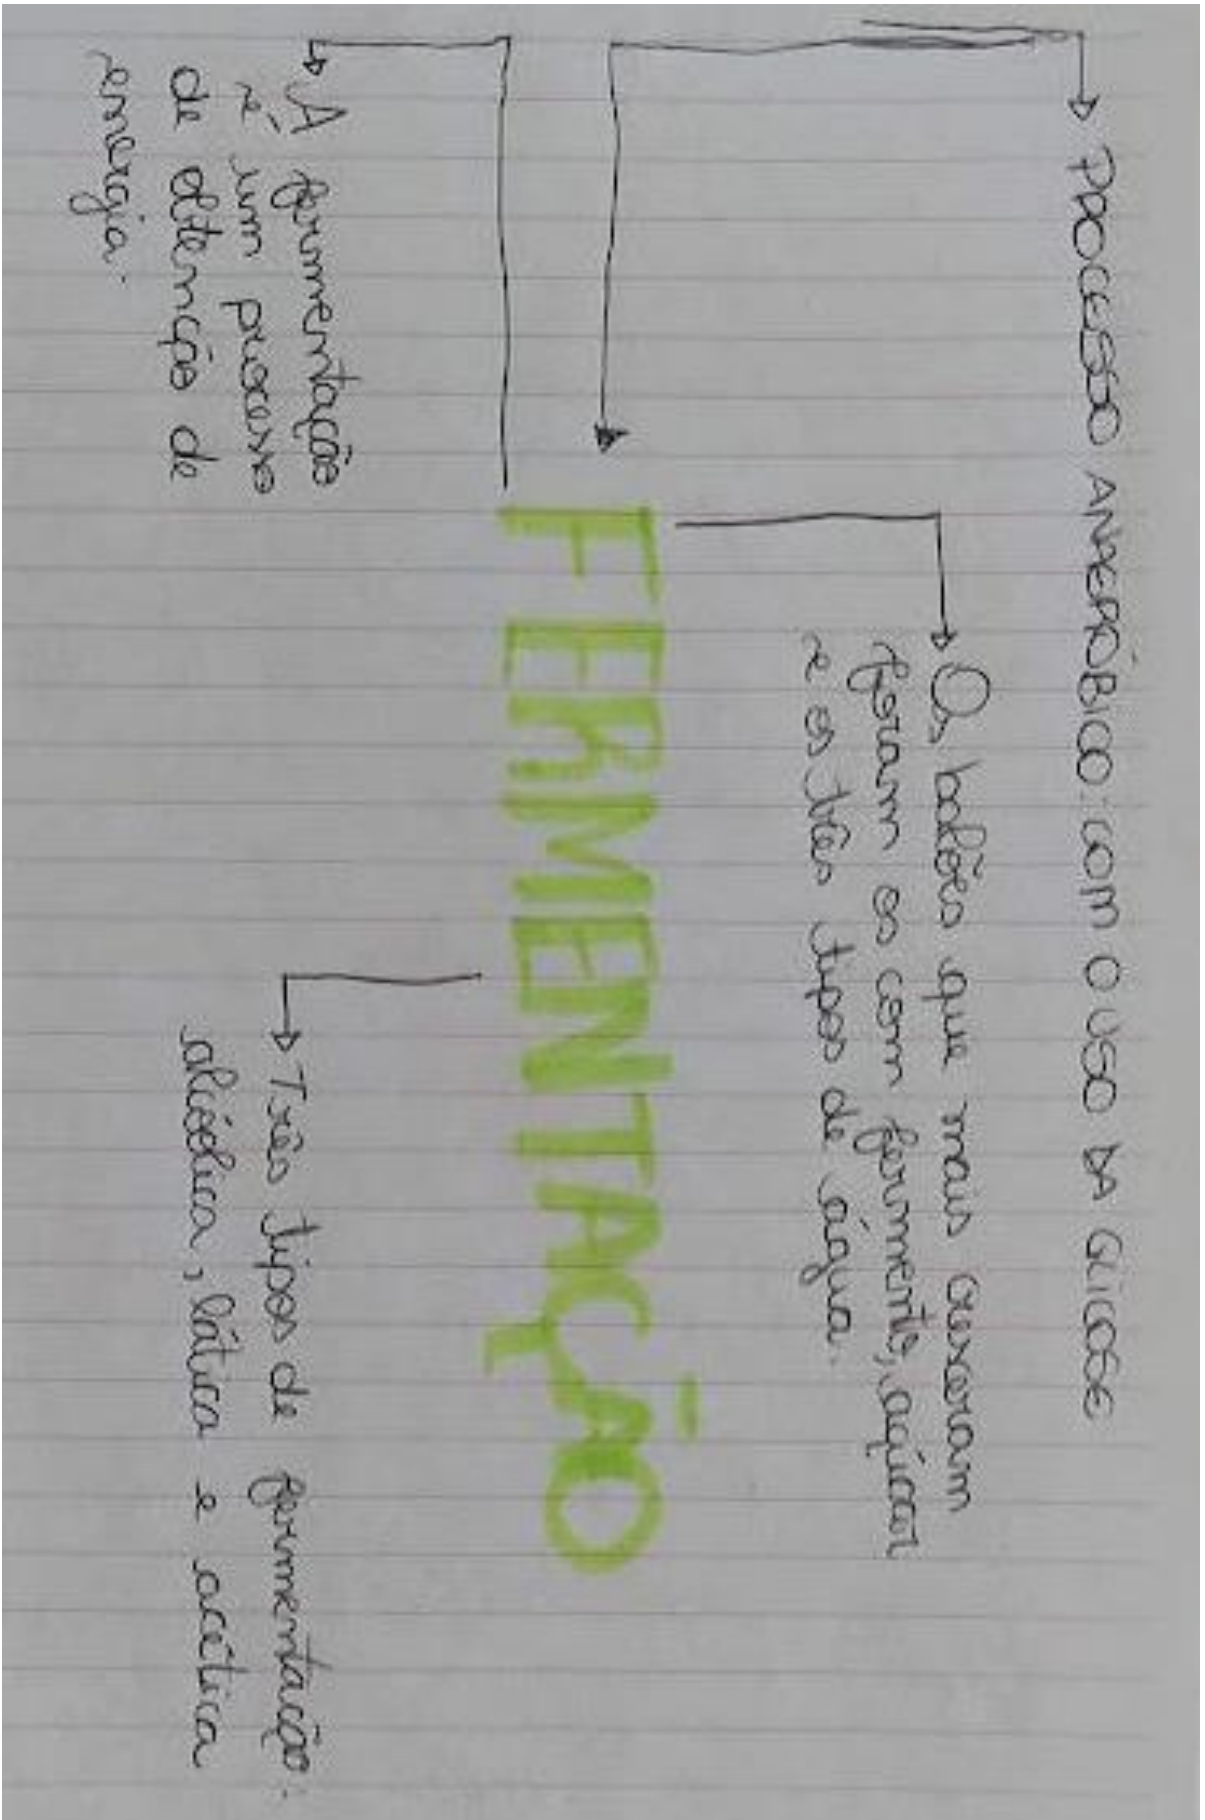 PROCESSO ANAERÓBICO: COM O USO DA GLICOSE
Os balões que mais cresceram
foram os com fermento, açúcar
e os três tipos de água.
FERMENTAÇÃO
A fermentação
é um processo
de obtenção de
energia.
Três tipos de fermentação:
alcóolica, lática e acética